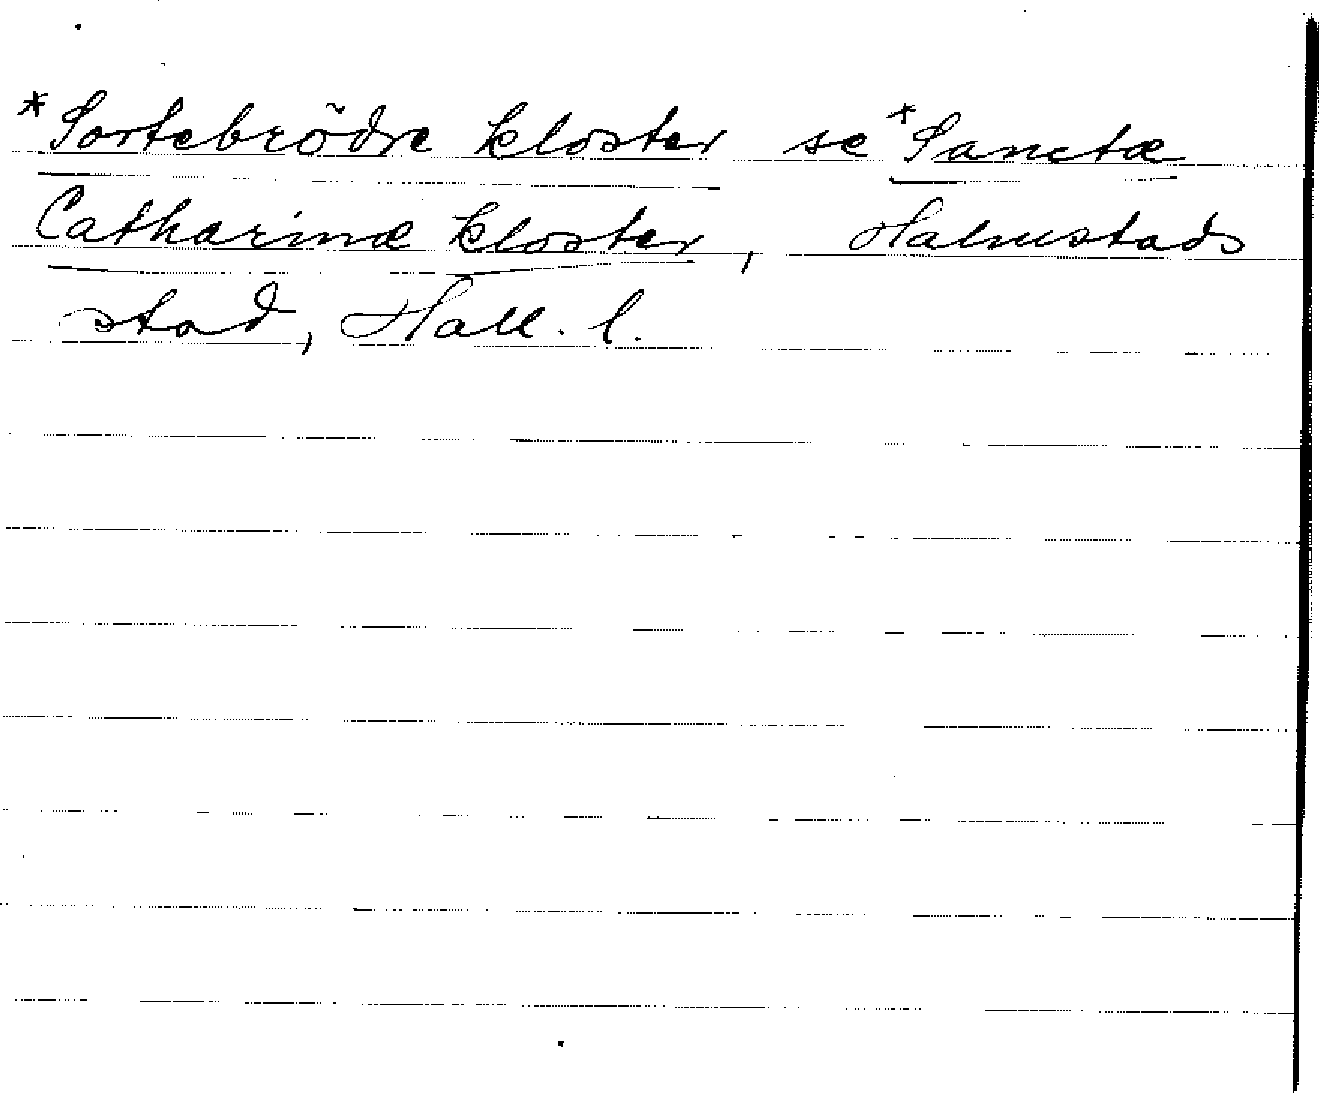 *Sortebrödre kloster se *Sanctæ
Catharinæ kloster, Halmstads
stad, Hall. l.